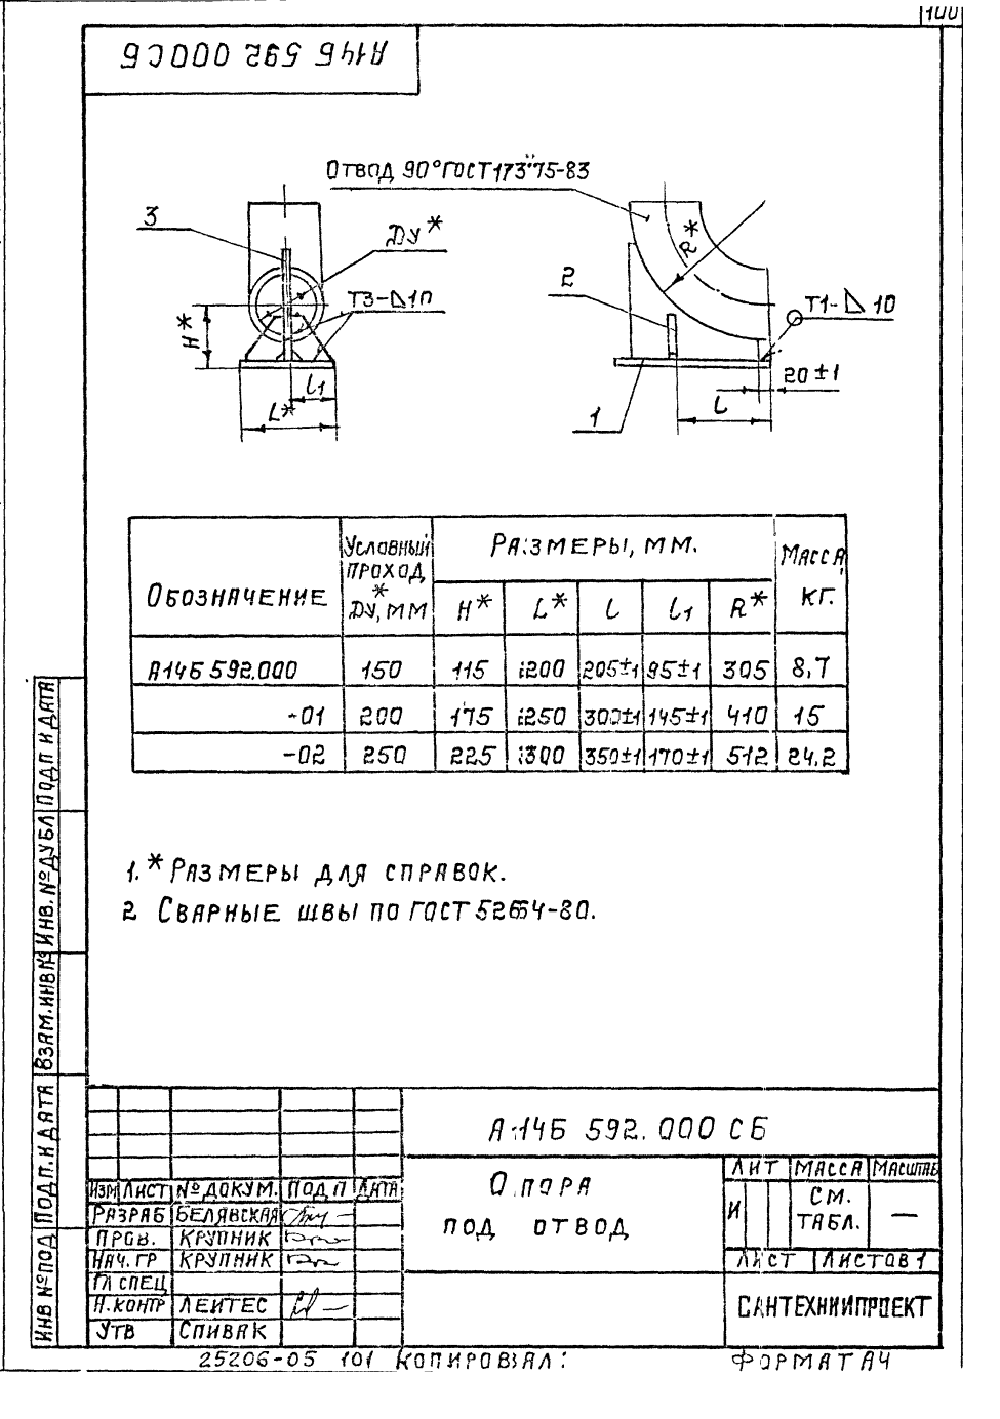 100
А14Б 592 000СБ
Отвод 90° ГОСТ 17375-83
3
Ду*
Т3-⊿10
H*
l1
L*
R*
2
Т1-⊿10
20±1
l
1
Обозначение | Условный проход * Ду, мм | Размеры, мм. | Масса, кг.
H* | L* | l | l1 | R*
А14Б 592.000 | 150 | 115 | 200 | 205±1 | 95±1 | 305 | 8,7
-01 | 200 | 175 | 250 | 300±1 | 145±1 | 410 | 15
-02 | 250 | 225 | 300 | 350±1 | 170±1 | 512 | 24,2
1. * Размеры для справок.
2 Сварные швы по ГОСТ 5264-80.
Инв №под
Подп. и дата
Взам.инв№
Инв.№дубл
Подп и дата
А14Б 592.000 СБ
Изм Лист №докум. Подп Дата
Разраб Белявская
Пров. Крупник
Нач. гр Крупник
Гл спец
Н.контр Леитес
Утв Спивак
Опора
под отвод
Лит Масса Масштаб
И см. табл. —
Лист Листов 1
Сантехниипроект
25206-05 101 Копировал: Формат А4